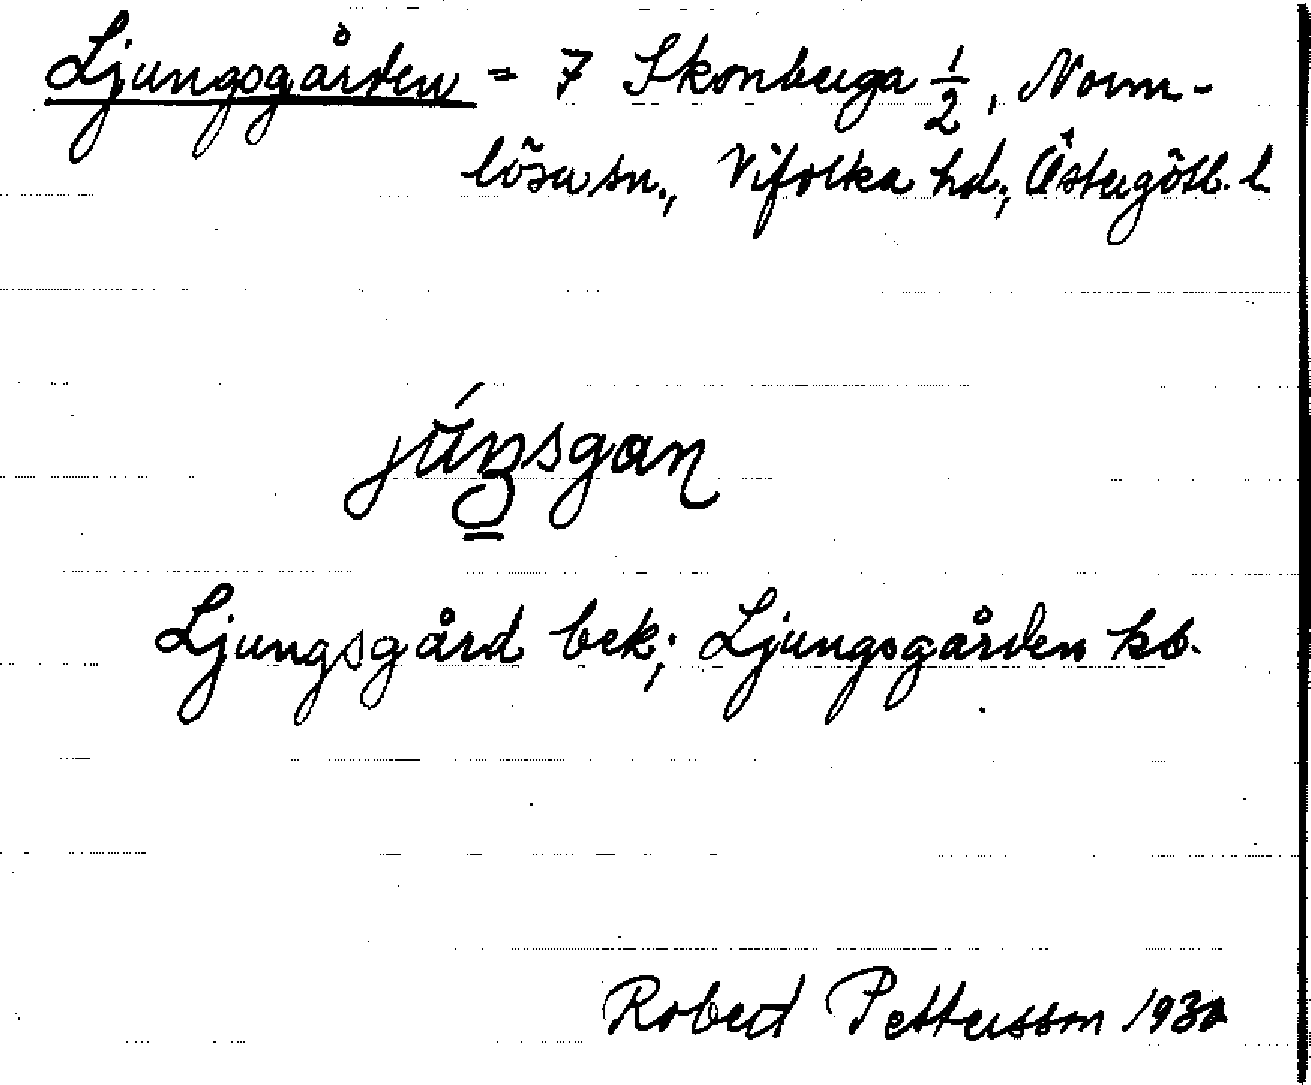 Ljungsgården = 7 Skonberga 1/2, Norm-
lösa sn., Vifolka hd., Östergötl. l.
Ljungsgård bek; Ljungsgården kb.
Robert Pettersson